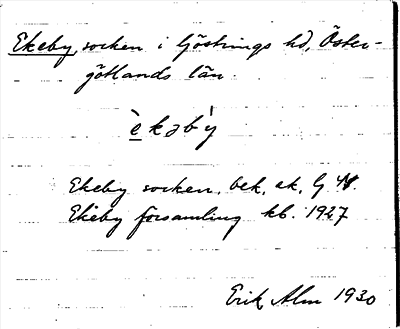 Ekeby socken i Göstrings hd, Öster-
götlands län.
èkəby̍
Ekeby socken, bek, ak, G
Ekeby församling kb. 1927
Erik Alm 1930